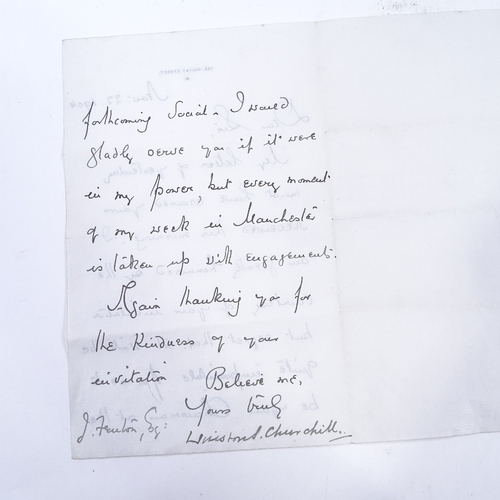 forthcoming Social. I would
gladly serve you if it were
in my power, but every moment
of my week in Manchester
is taken up with engagements.
Again thanking you for
the kindness of your
invitation Believe me,
Yours truly
J. Fenton, Esq:
Winston S. Churchill.